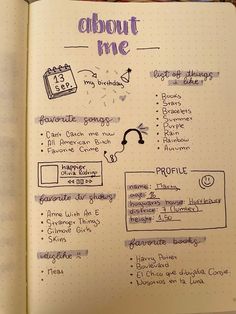 about
me
13
SEP.
my birthday
list of things
i like
Books
Stars
Bracelets
Summer
Purple
Rain
Rainbow
Autumn
favorite songs
Can't Catch me now
All American Bitch
Favorite Crime
happier
Olivia Rodrigo
PROFILE
name:
age: 16
hogwarts house: Hufflepuff
district: 7 (lumber)
height: 1,50
favorite tv shows
Anne With An E
Stranger Things
Gilmore Girls
Skins
dislike:
Meat
favorite books
Harry Potter
Boulevard
El Chico que dibujaba Conste.
Nosotros en la Luna